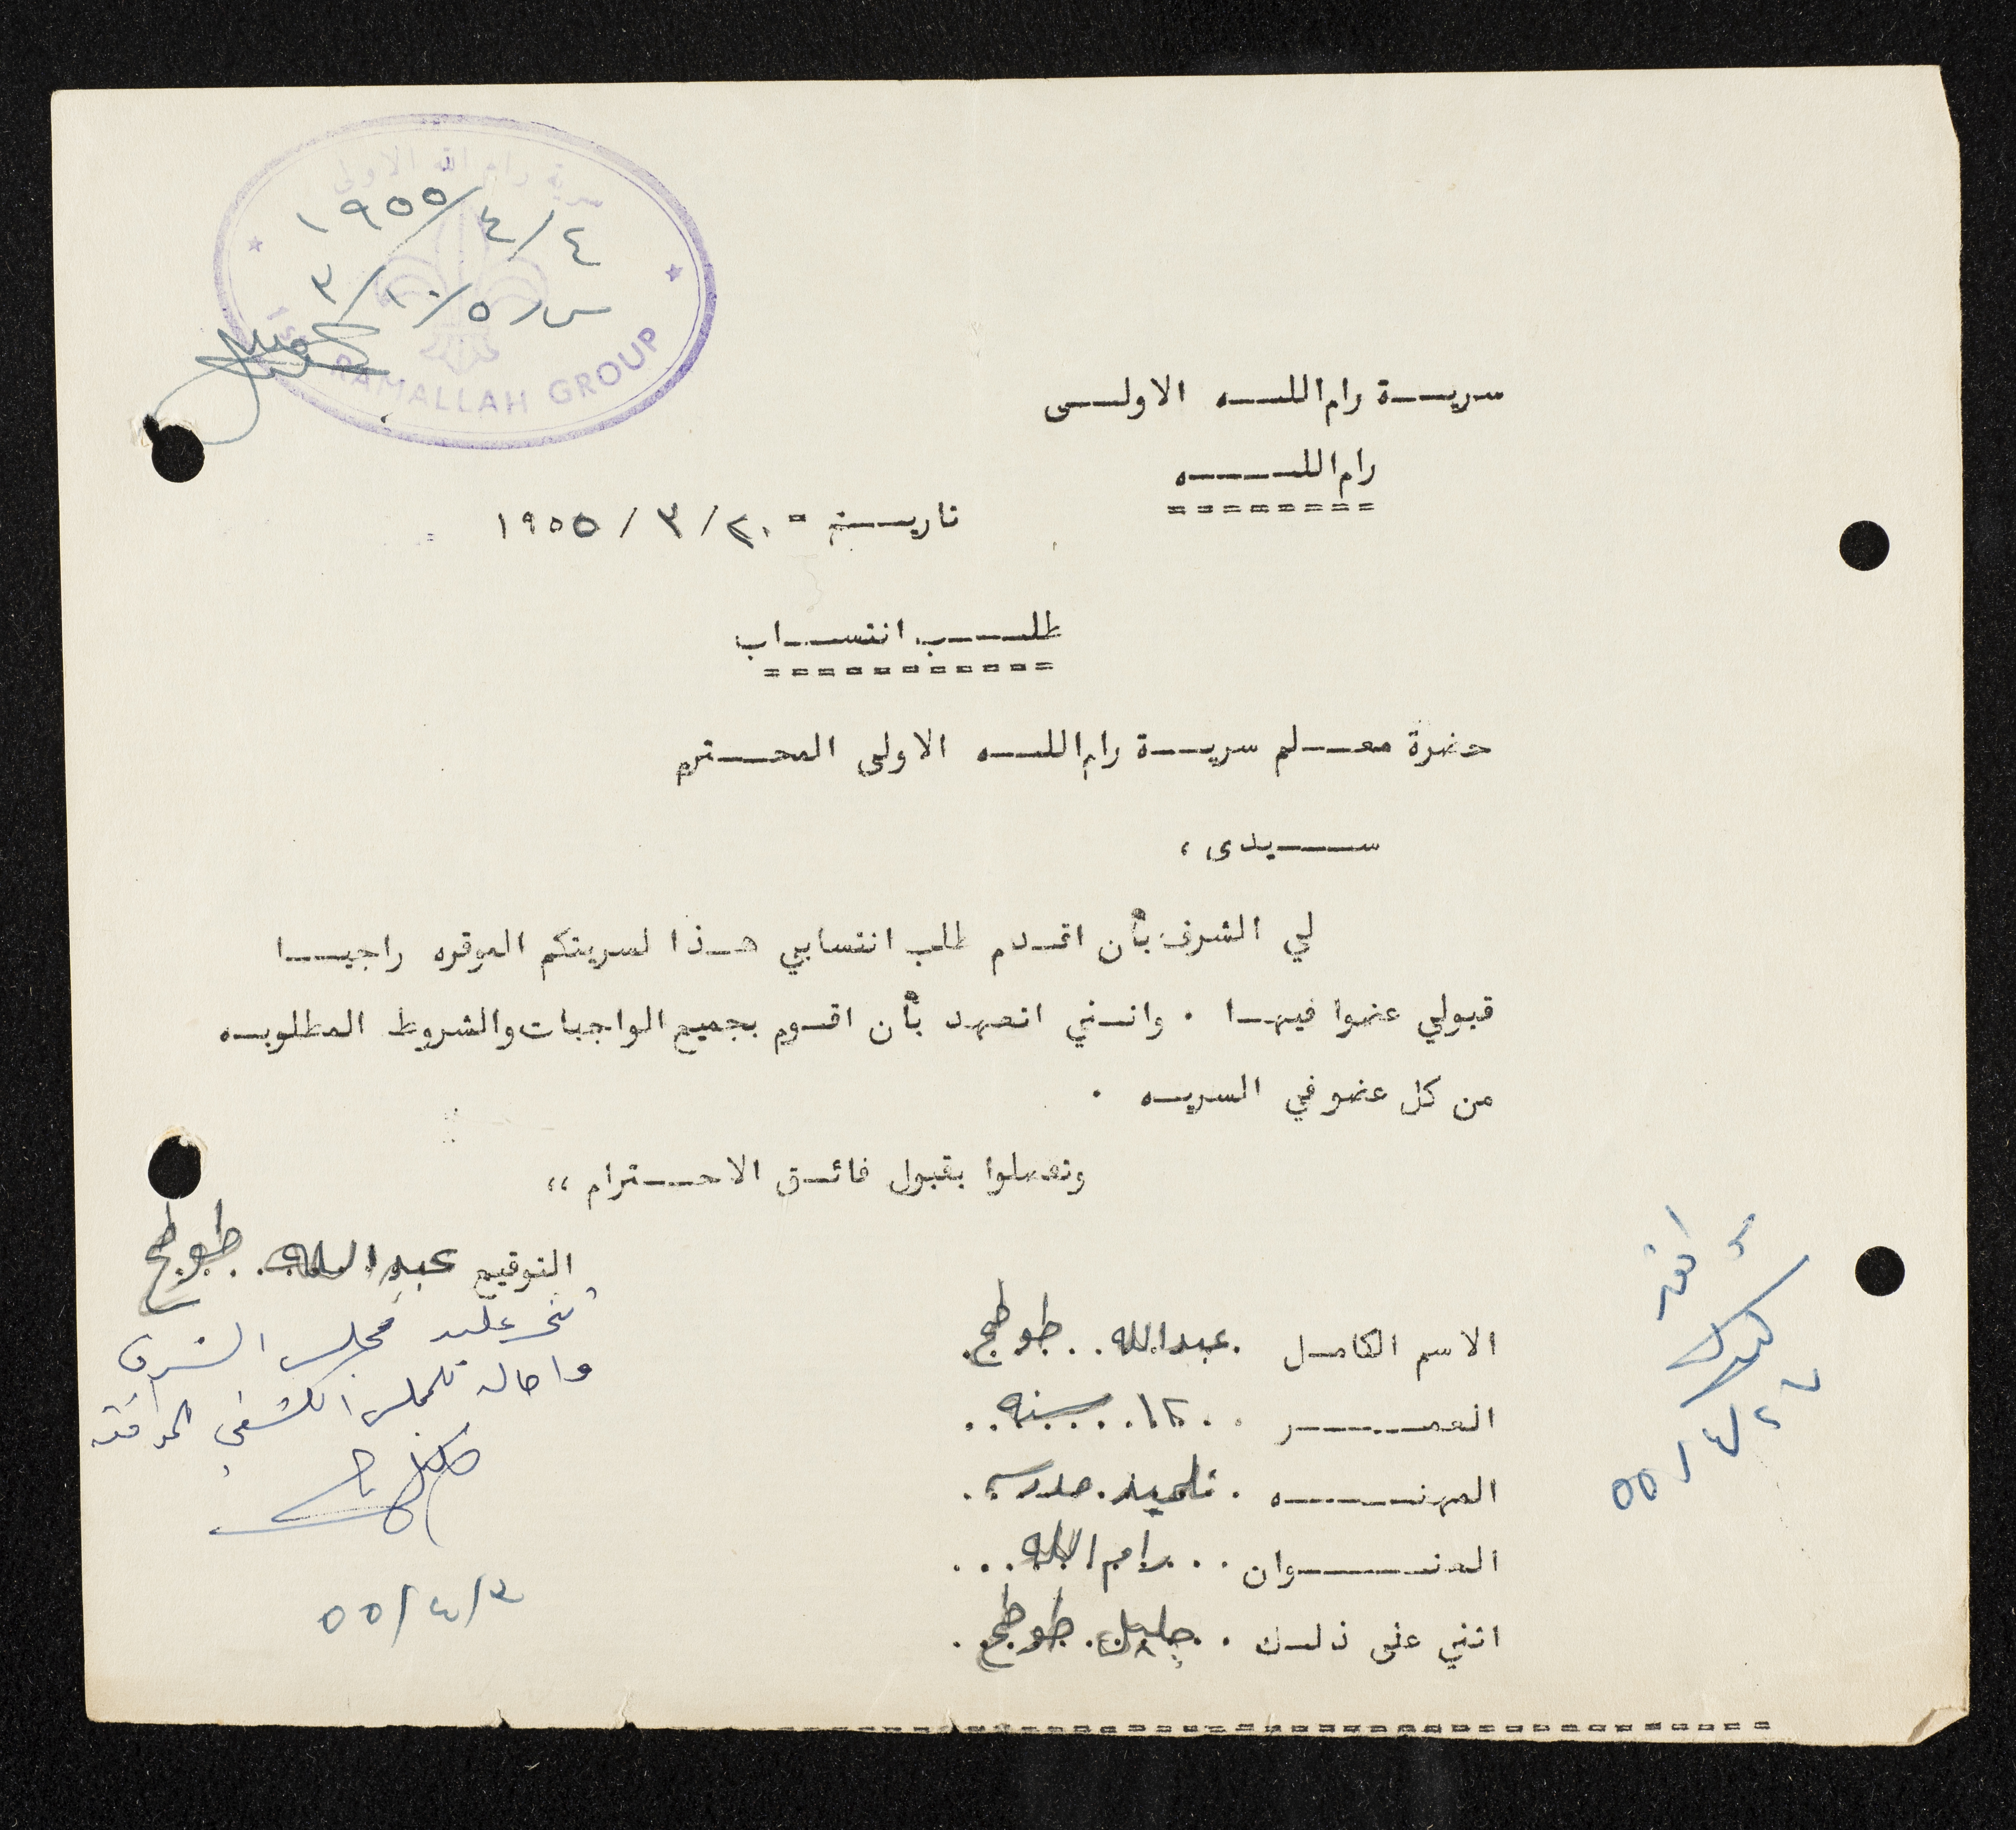 سرية رام الله الاولى
١٩٥٥/٤/٤
س ر ٣/١٠/٥
1st RAMALLAH GROUP
سريـــة رام اللـــه الاولـــى
رام اللـــــه
========
تاريـــخ = ٢٠/ ٣ / ١٩٥٥
طلـــب انتســـاب
===========
حضرة معـــلم سريـــة رام اللـــه الاولى المحـــترم
ســـيدى ،
لي الشرف بأن اقـدم طلب انتسابي هـذا لسريتكم الموقره راجيـــا
قبولي عضوا فيهـا ٠ وانـني اتعهد بأن اقـوم بجميع الواجبات والشروط المطلوبـه
من كل عضو في السريـه ٠
وتفضلوا بقبول فائـق الاحـــترام ،،
التوقيع عبد الله طوطح
مجلس الشرف
واحاله للمجلس الكشفي
٥٥/٤/٣
الاسم الكامـل عبدالله طوطح
العمـــــر ١٢ سنه
المهنـــــه تلميذ مدرسة
العنـــــوان رام الله
انني على ذلـك جليل طوطح
اوافق